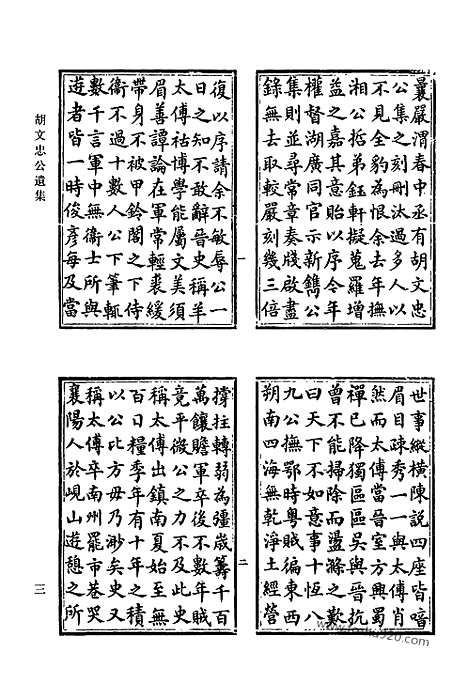 曩嚴渭春中丞有胡文忠
公集之刻刪汰過多人以
不見全豹為恨余去年撫
湘公哲弟鈺軒擬蒐羅增
益之嘉其意貽以序今年
權督湖廣同官示新鐫公
集則並尋常章奏牋啟盡
錄無去取較嚴刻幾三倍
一
復以序請余不敏辱公一
日之知不敢辭晉史稱羊
太傅祜博學能屬文美須
眉善譚論在軍常輕裘緩
帶身不被甲鈴閣之下侍
衛不過十數人公下筆輒
數千言軍中無衛士所與
遊者皆一時俊彥每及當
世事縱橫陳說四座皆喑
眉目疎秀一一與太傅肖
然而太傅當晉室方興蜀
禪已降獨區區吳與晉抗
曾不能掃除而盪滌之歎
曰天下不如意事十恆八
九公撫鄂時粵賊徧東西
朔南四海無乾淨土經營
二
撐拄轉弱為彊歲籌千百
萬饟贍軍卒後不數年賊
竟平微公之力不及此史
稱太傅出鎮南夏始至無
百日糧季年有十年之積
以公比方毋乃渺矣史又
稱太傅卒南州罷市巷哭
襄陽人於峴山遊憩之所
胡文忠公遺集
三